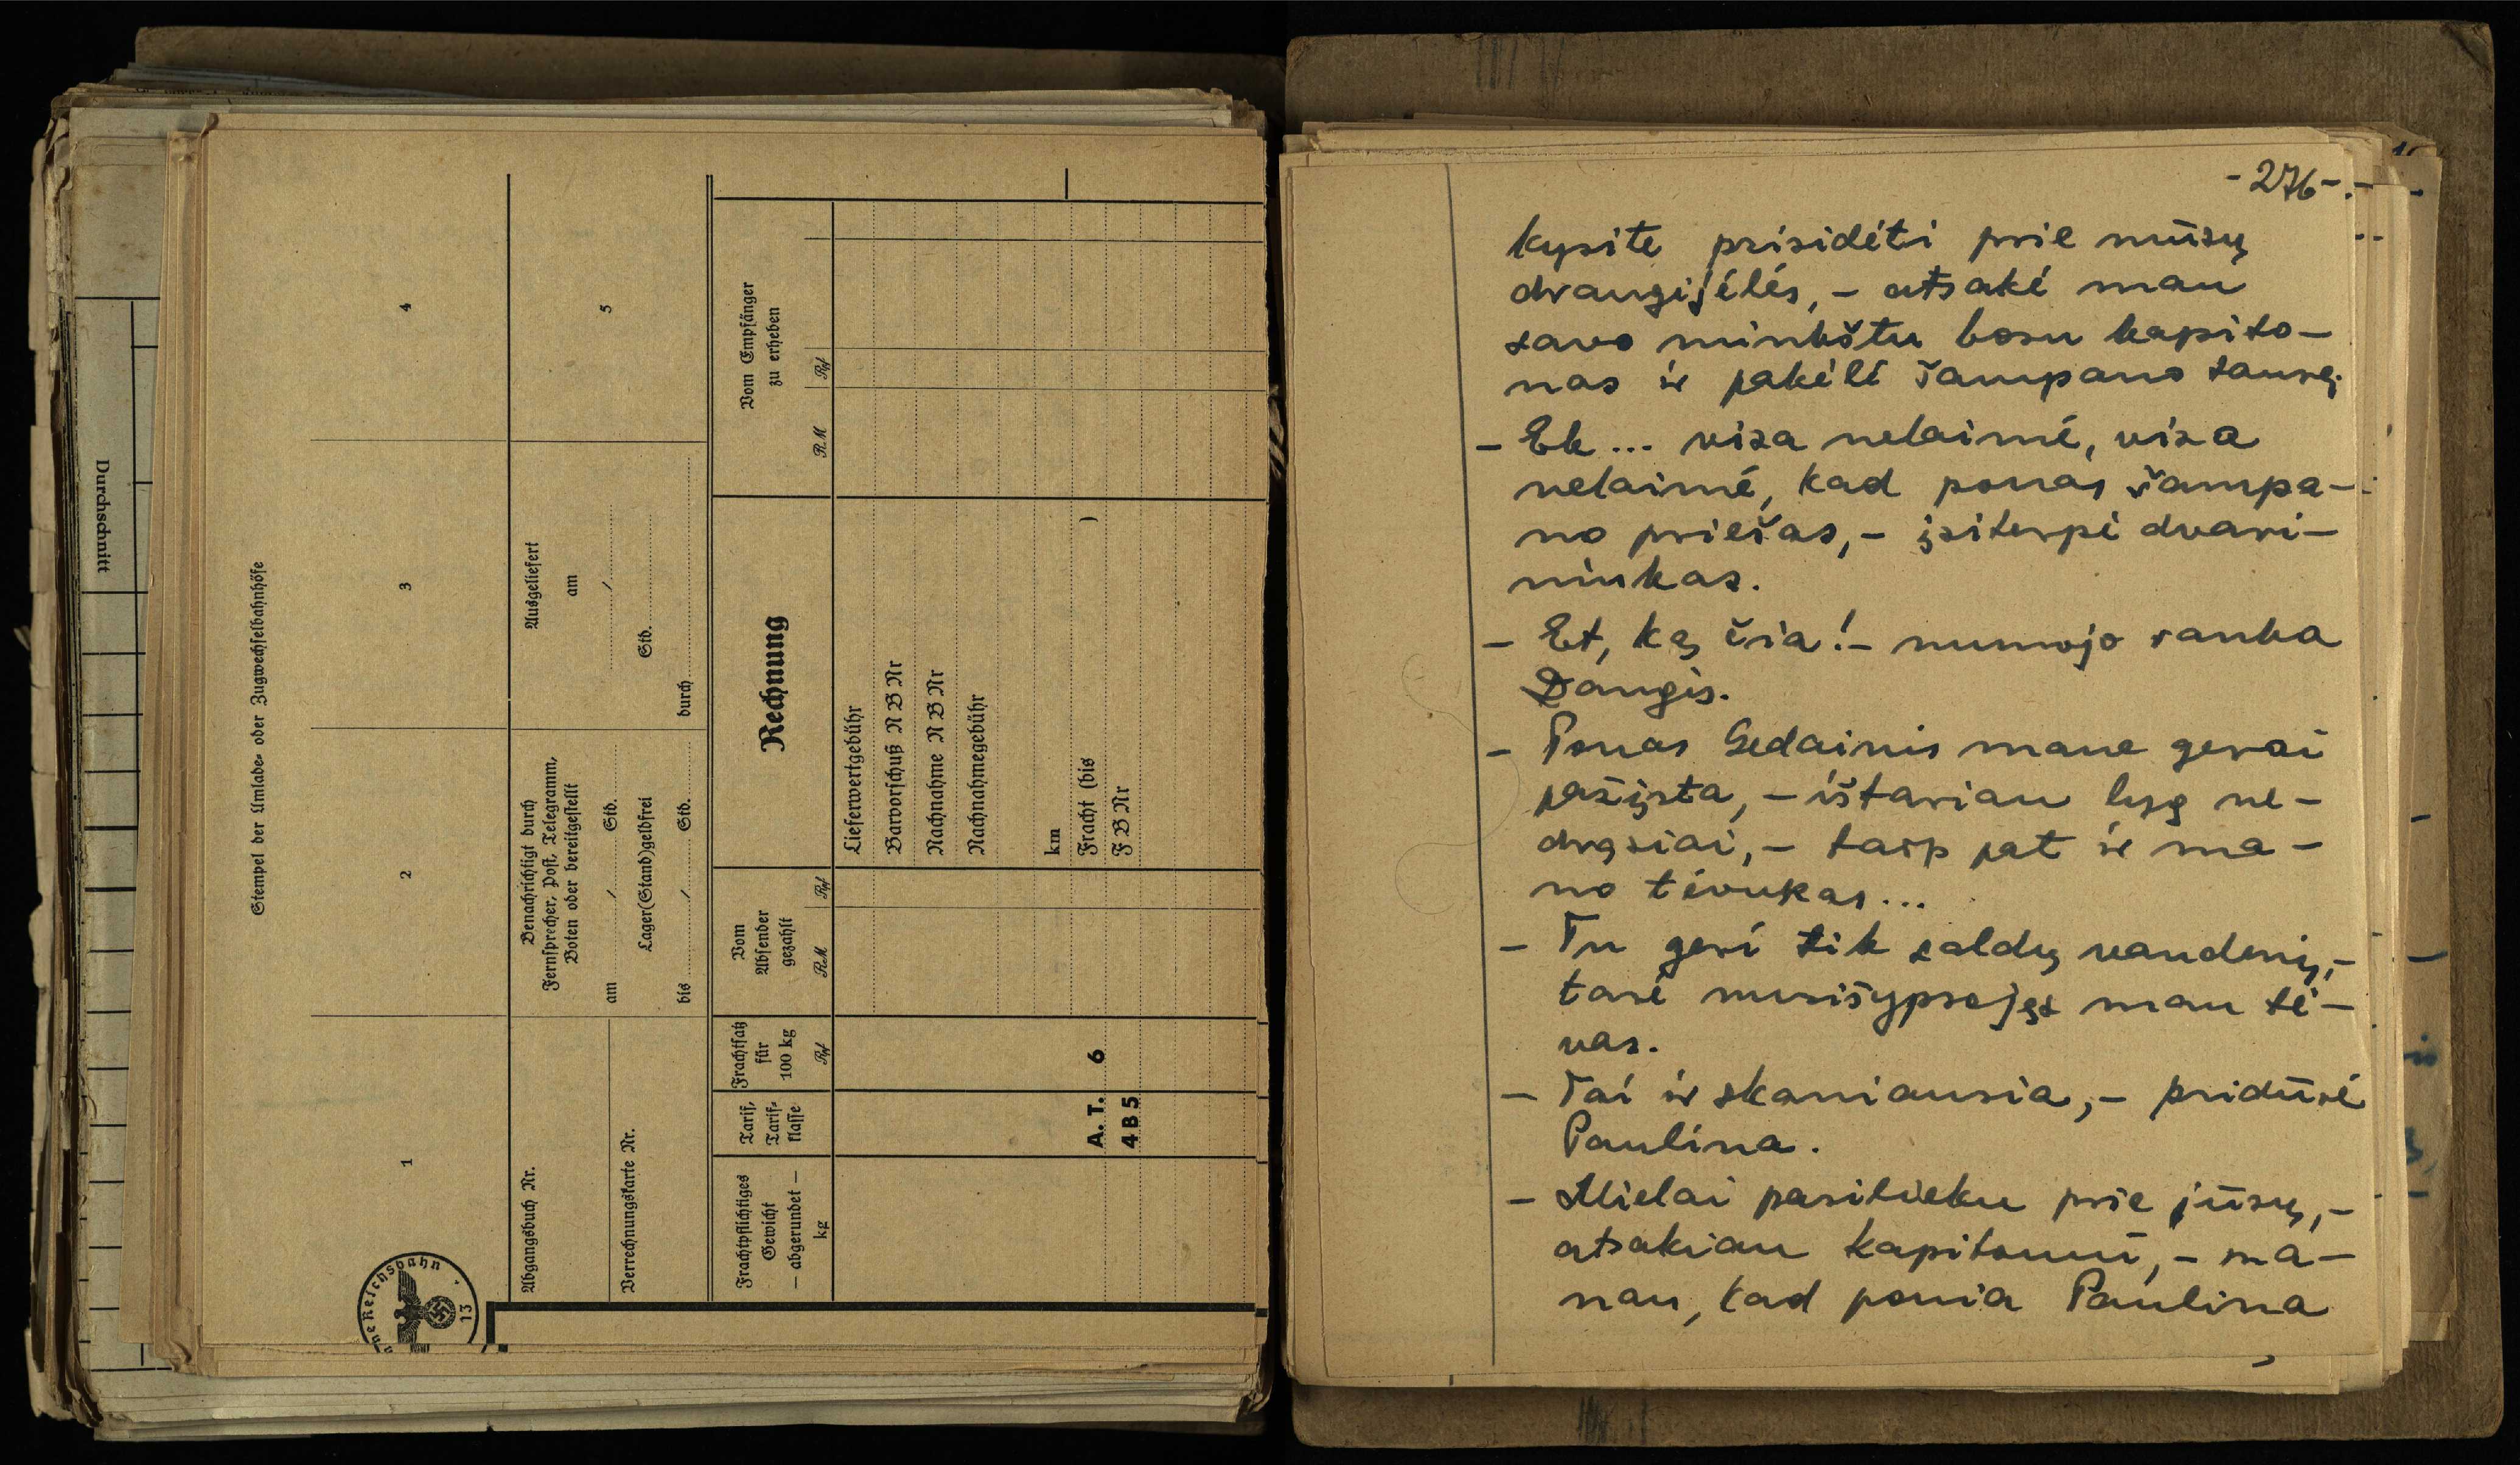 Durchschnitt
Stempel der Umlade- oder Zugwechselbahnhöfe
1
2
3
4
Abgangsbuch Nr.
Verrechnungskarte Nr.
Benachrichtigt durch
Fernsprecher, Post, Telegramm,
Boten oder bereitgestellt
am / Std.
Lager(Stand)geldfrei
bis / Std.
Ausgeliefert
am
/
Std.
durch
5
Frachtpflichtiges
Gewicht
— abgerundet —
kg
Tarif,
Tarif-
klasse
Frachtsatz
für
100 kg
Rpf
Vom
Absender
gezahlt
RM Rpf
Rechnung
Vom Empfänger
zu erheben
RM Rpf
Lieferwertgebühr
Barvorschuß N B Nr
Nachnahme N B Nr
Nachnahmegebühr
km
A. T. 6 Fracht (bis )
4 B 5 F B Nr
ne Reichsbahn
13
- 276 -
kysite prisidėti prie mūsų
draugijėlės, - atsakė man
savo minkštu bosu kapito-
nas ir pakėlė šampano taurę.
- Ek... visa nelaimė, visa
nelaimė, kad ponas šampa-
no priešas, - įsiterpė dvari-
ninkas.
- Et, ką čia! - numojo ranka
Daugis.
- Ponas Gedainis mane gerai
pažįsta, - ištariau lyg ne-
drąsiai, - taip pat ir ma-
no tėvukas...
- Tu geri tik saldų vandenį, -
tarė nusišypsojęs man tė-
vas.
- Tai ir skaniausia, - pridūrė
Paulina.
- Mielai pasilieku prie jūsų, -
atsakiau kapitonui, - ma-
nau, kad ponia Paulina